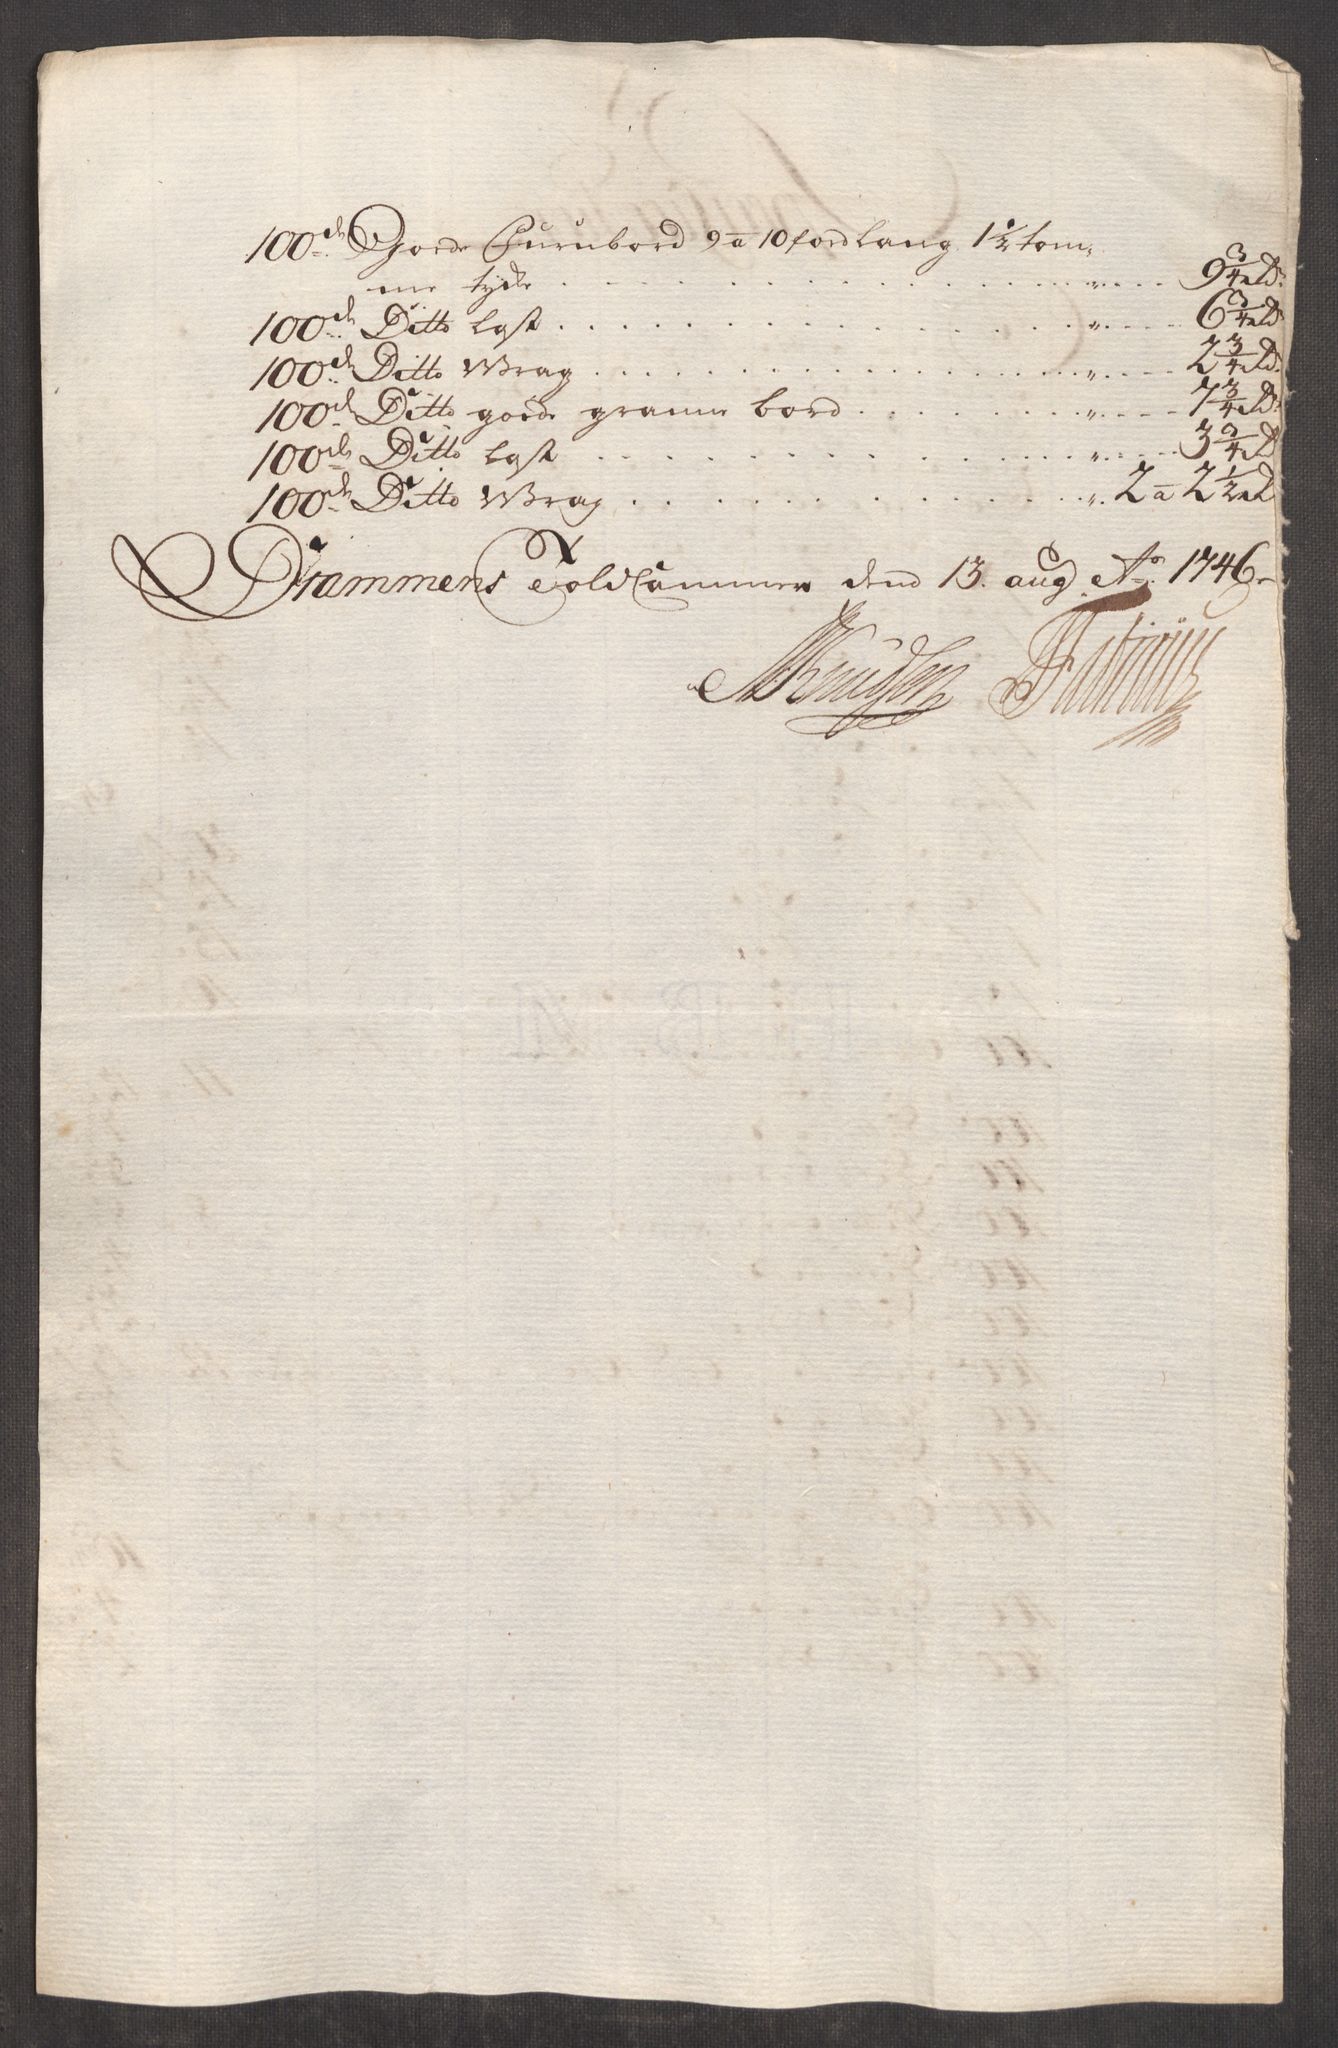 100de Goede Furubord 9 a 10 fod lang 1 1/2 tom-
me tycke . . . . . . . . . . . . . . . . „ . - - - 9 3/4 rd
100de Ditto Last . . . . . . . . . . . . . . . „ . - - - 6 3/4 rd
100de Ditto Wrag . . . . . . . . . . . . . . „ . - - - 2 3/4 rd
100de Ditto goede granne bord . . . . . . . „ . - - - 7 3/4 rd
100de Ditto Last . . . . . . . . . . . . . . . „ . - - - 3 3/4 rd
100de Ditto Wrag . . . . . . . . . . . . . „ . 2 a 2 1/2 rd
Drammens Told Cammer dend 13. aug. Ao. 1746
Knudsen